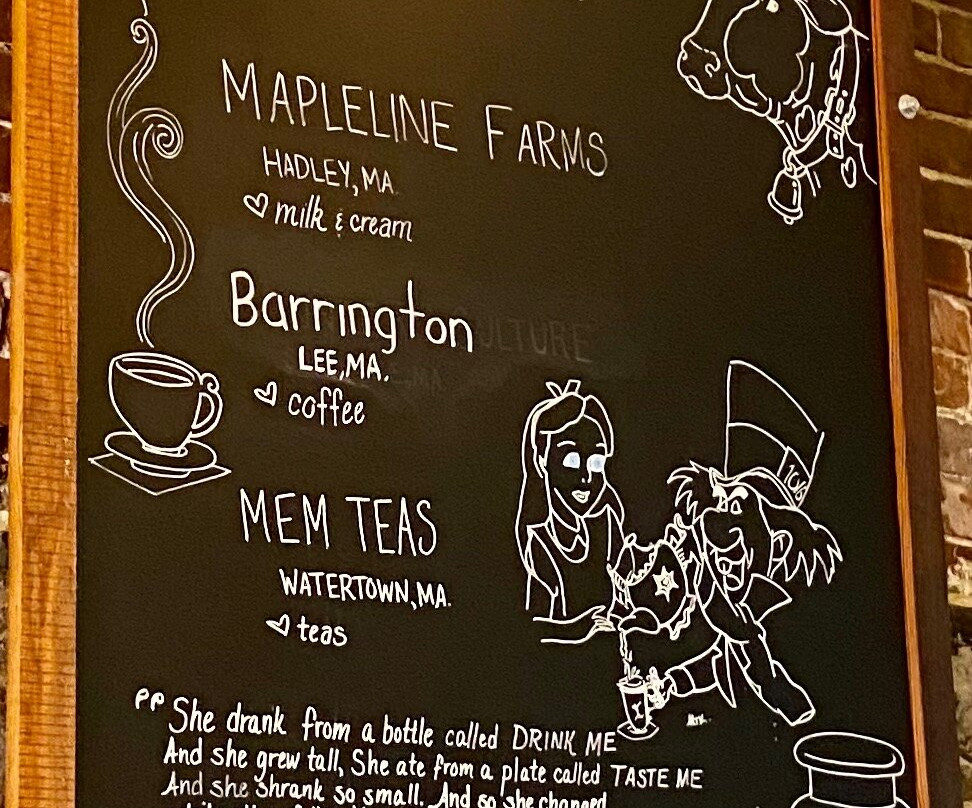 MAPLELINE FARMS
HADLEY, MA
milk & cream
Barrington
ULTURE
LEE, MA.
coffee
MEM TEAS
WATERTOWN, MA.
teas
She drank from a bottle called DRINK ME
And she grew tall, She ate from a plate called TASTE ME
And she shrank so small. And so she changed